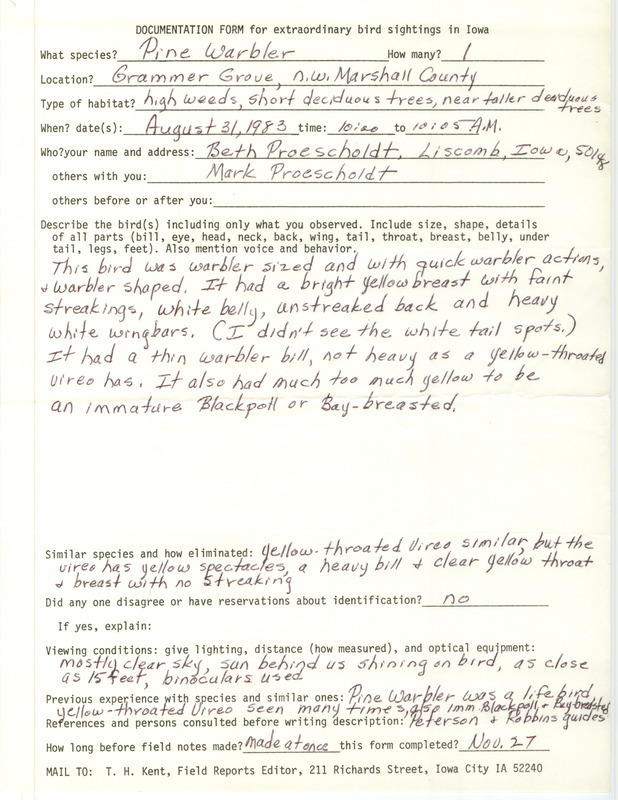 DOCUMENTATION FORM for extraordinary bird sightings in Iowa
What species? Pine Warbler How many? 1
Location? Grammer Grove, n.w. Marshall County
Type of habitat? high weeds, short deciduous trees, near taller deciduous
trees
When? date(s): August 31, 1983 time: 10:00 to 10:05 A.M.
Who?your name and address: Beth Proescholdt, Liscomb, Iowa,
others with you: Mark Proescholdt
others before or after you:
Describe the bird(s) including only what you observed. Include size, shape, details
of all parts (bill, eye, head, neck, back, wing, tail, throat, breast, belly, under
tail, legs, feet). Also mention voice and behavior.
This bird was warbler sized and with quick warbler actions,
& warbler shaped. It had a bright yellow breast with faint
streakings, white belly, unstreaked back and heavy
white wingbars. (I didn't see the white tail spots.)
It had a thin warbler bill, not heavy as a yellow-throated
vireo has. It also had much too much yellow to be
an immature Blackpoll or Bay-breasted.
Similar species and how eliminated: Yellow-throated Vireo similar, but the
vireo has yellow spectacles, a heavy bill & clear yellow throat
& breast with no streaking
Did any one disagree or have reservations about identification? no
If yes, explain:
Viewing conditions: give lighting, distance (how measured), and optical equipment:
mostly clear sky, sun behind us shining on bird, as close
as 15 feet, binoculars used
Previous experience with species and similar ones: Pine Warbler was a life bird,
yellow-throated Vireo seen many times, also imm. Blackpoll & Bay-breasted
References and persons consulted before writing description: Peterson & Robbins guides
How long before field notes made? made at once this form completed? Nov. 27
MAIL TO: T. H. Kent, Field Reports Editor, 211 Richards Street, Iowa City IA 52240